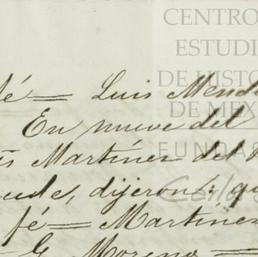 CENTRO
ESTUDI
DE HISTO
DE MÉX
FUNDA
fé = Luis Mend
En nueve del
s Martínez del
ude, dijeron: qu
fé = Martínez
= G. Moreno =